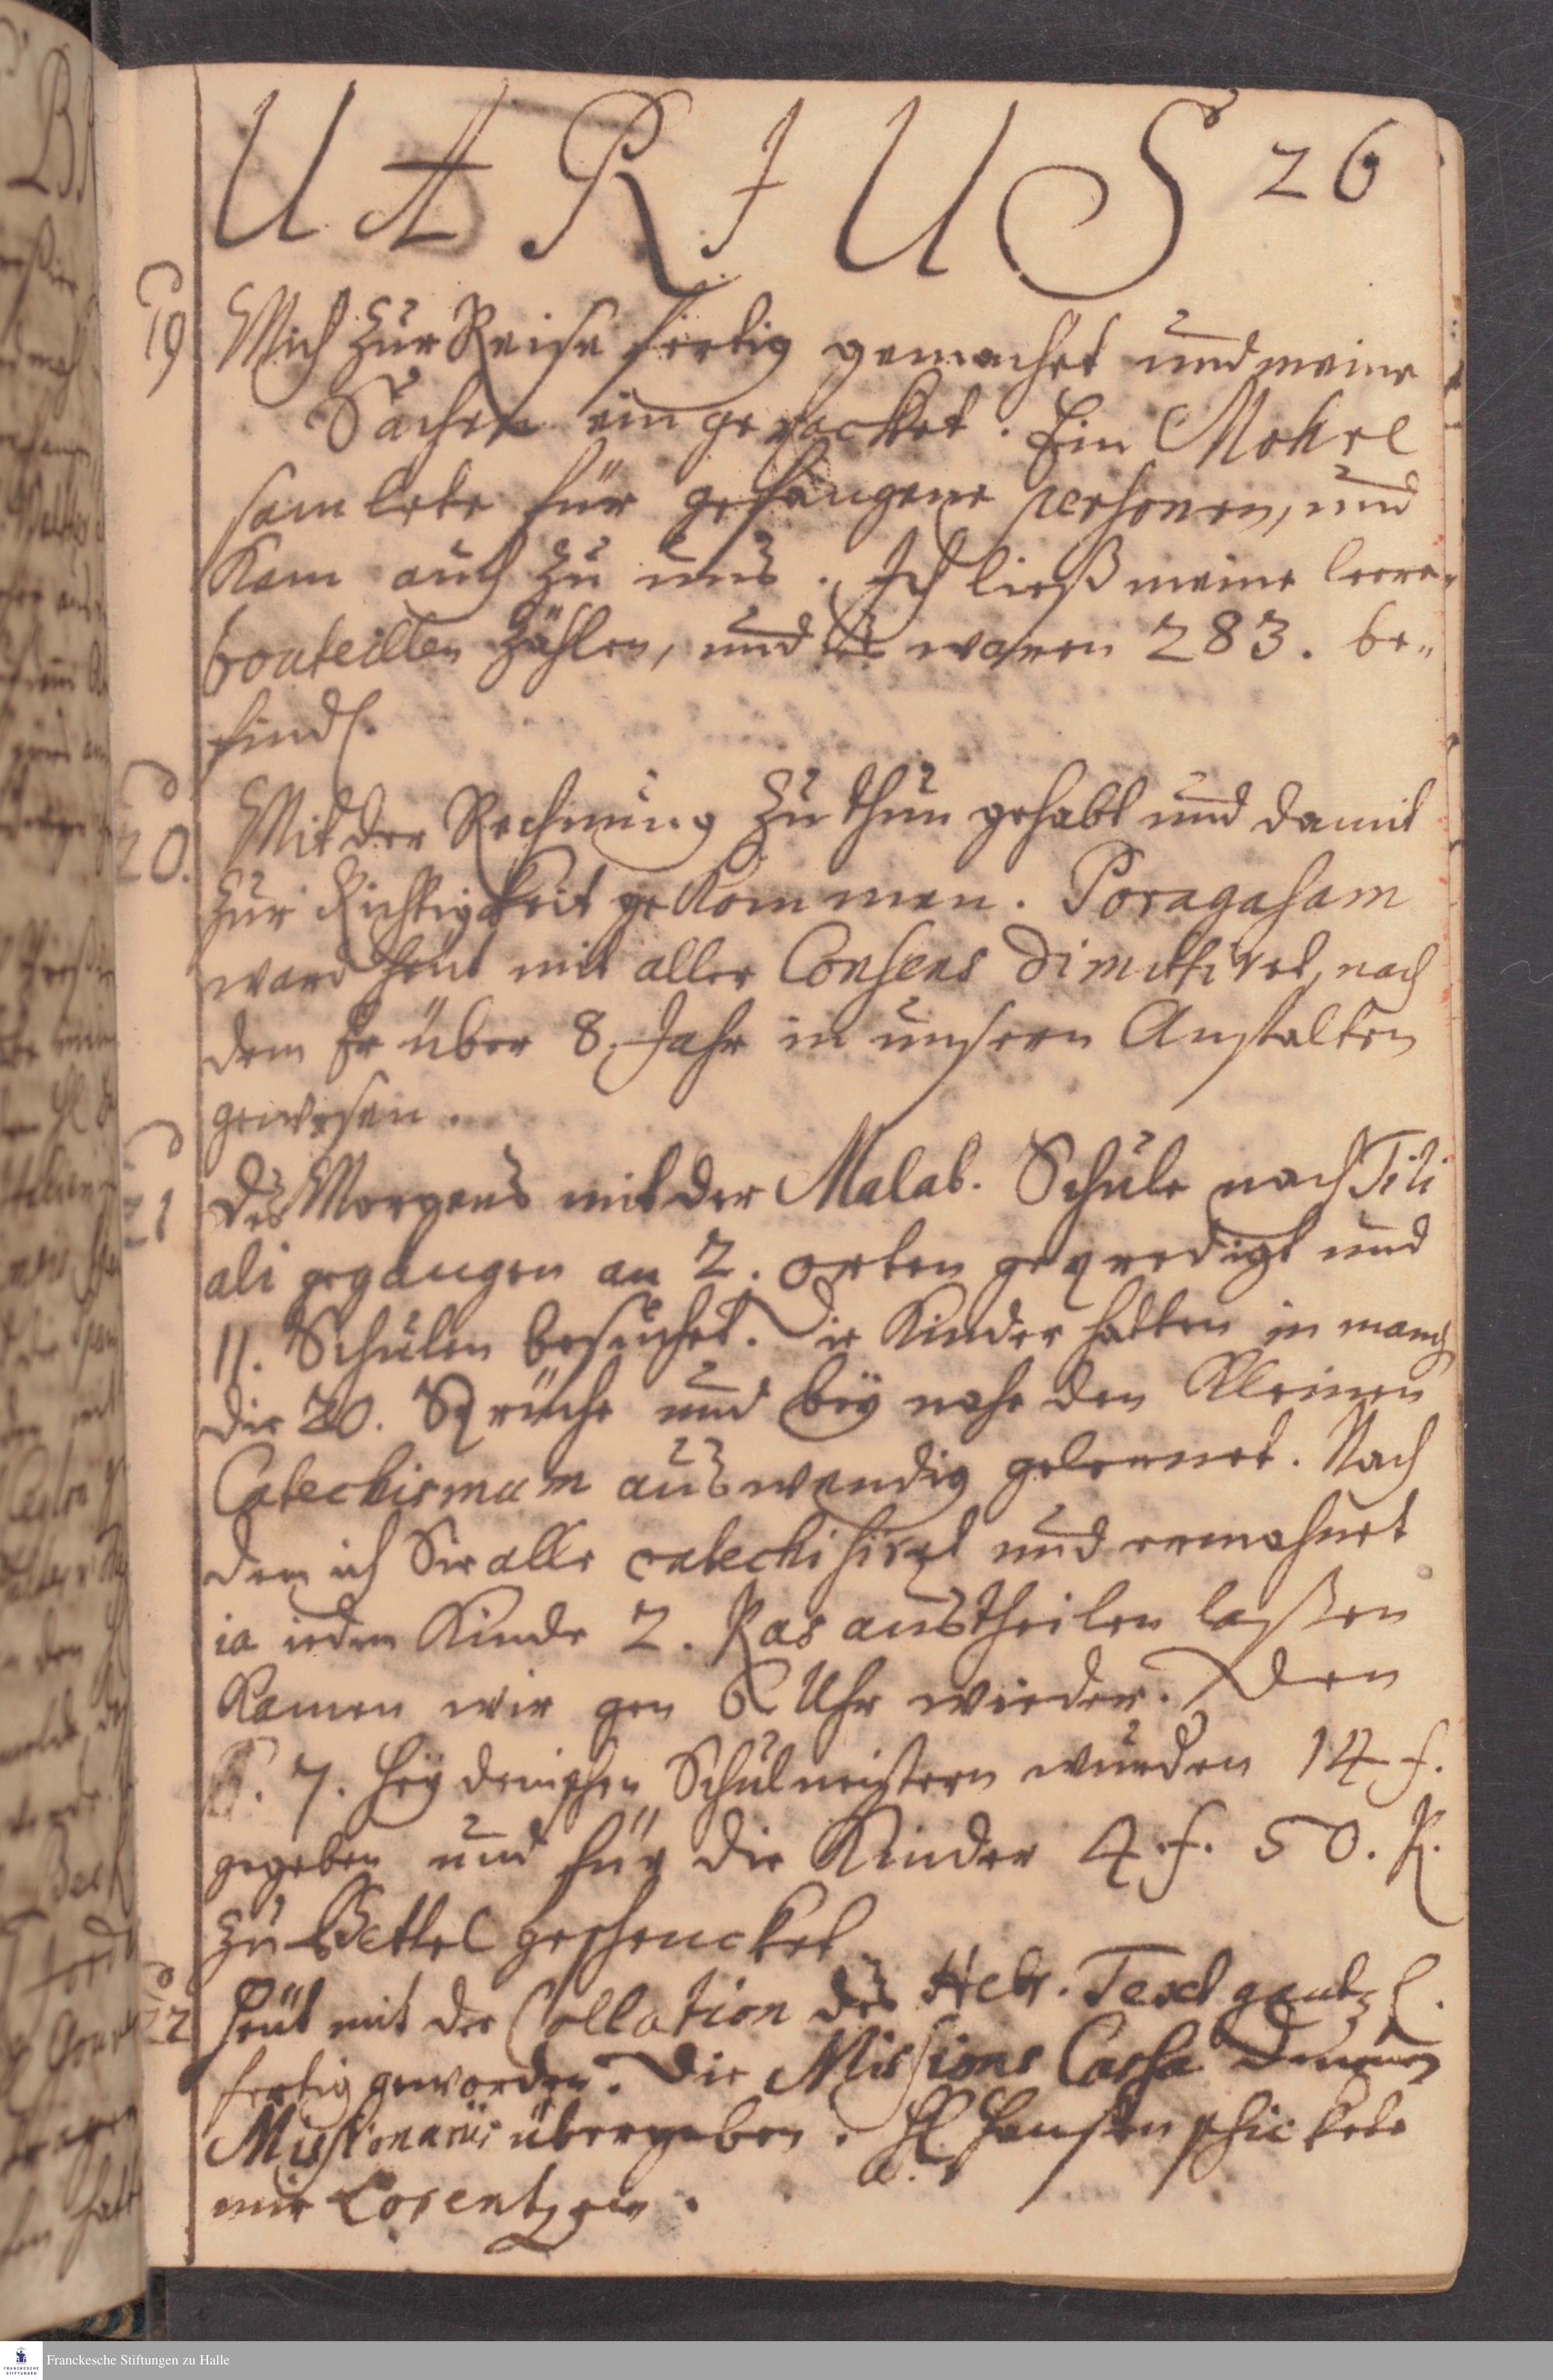 UARIUS 26
19 Mich zur Reise fertig gemachet und meine
Sachen eingepacket. Ein Mohre
samlete für gefangene personen, und
kam auch zu uns. Ich ließ meine leere
bouteillen zählen, und waren 283. be„
findl.
20. Mit der Rechnung zu thun gehabt und damit
zur Richtigkeit gekommen. Poragasam
ward heut mit aller Consens dimittiret, nach
dem Er über 8. Jahr in unsern Anstalten
gewesen.
21 Des Morgens mit der Malab. Schule nach Tili
ali gegangen an 2. orten geprediget und
11. Schulen besuchet. Die Kinder hatten in mang
die 20. Sprüche und bey nahe den Kleinen
Catechismum auswendig gelernet. Nach
dem ich Sie alle catechisiret und ermahnet
ia iedem Kinde 2. Kas austheilen laßen
kamen wir gen 6 Uhr wieder. Den
7. Heydenischen Schulmeistern wurden 14 f.
gegeben und für die Kinder 4 f. 50. K.
zu Bettel geschencket
22 Heut mit der Collation des Hebr. Text gantzl.
fertig geworden. Die Missions Cassa
Missionariis übergeben. H. Hansen schickete
mir Lorentzen.
Franckesche Stiftungen zu Halle